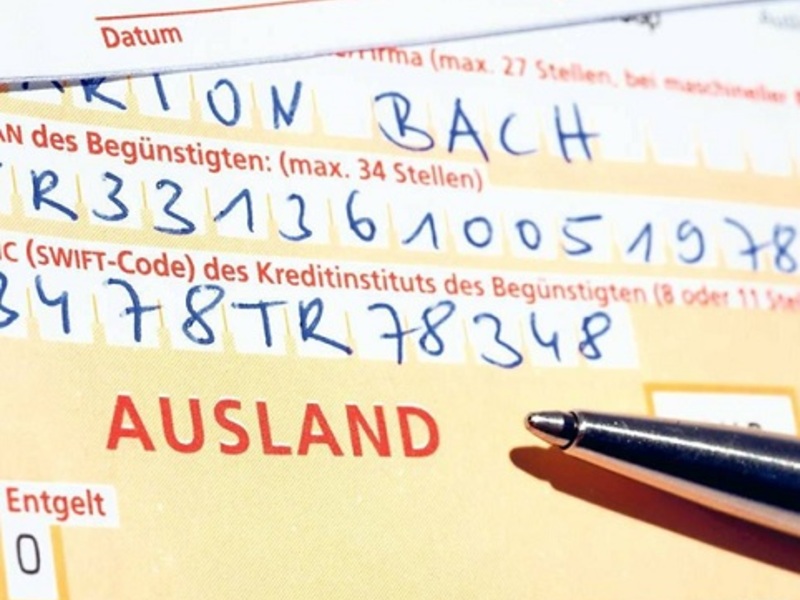 Datum
Firma (max. 27 Stellen, bei maschineller
ARTON BACH
AN des Begünstigten: (max. 34 Stellen)
TR3313610051978
IC (SWIFT-Code) des Kreditinstituts des Begünstigten (8 oder 11 Stel
3478TR78348
AUSLAND
Entgelt
0